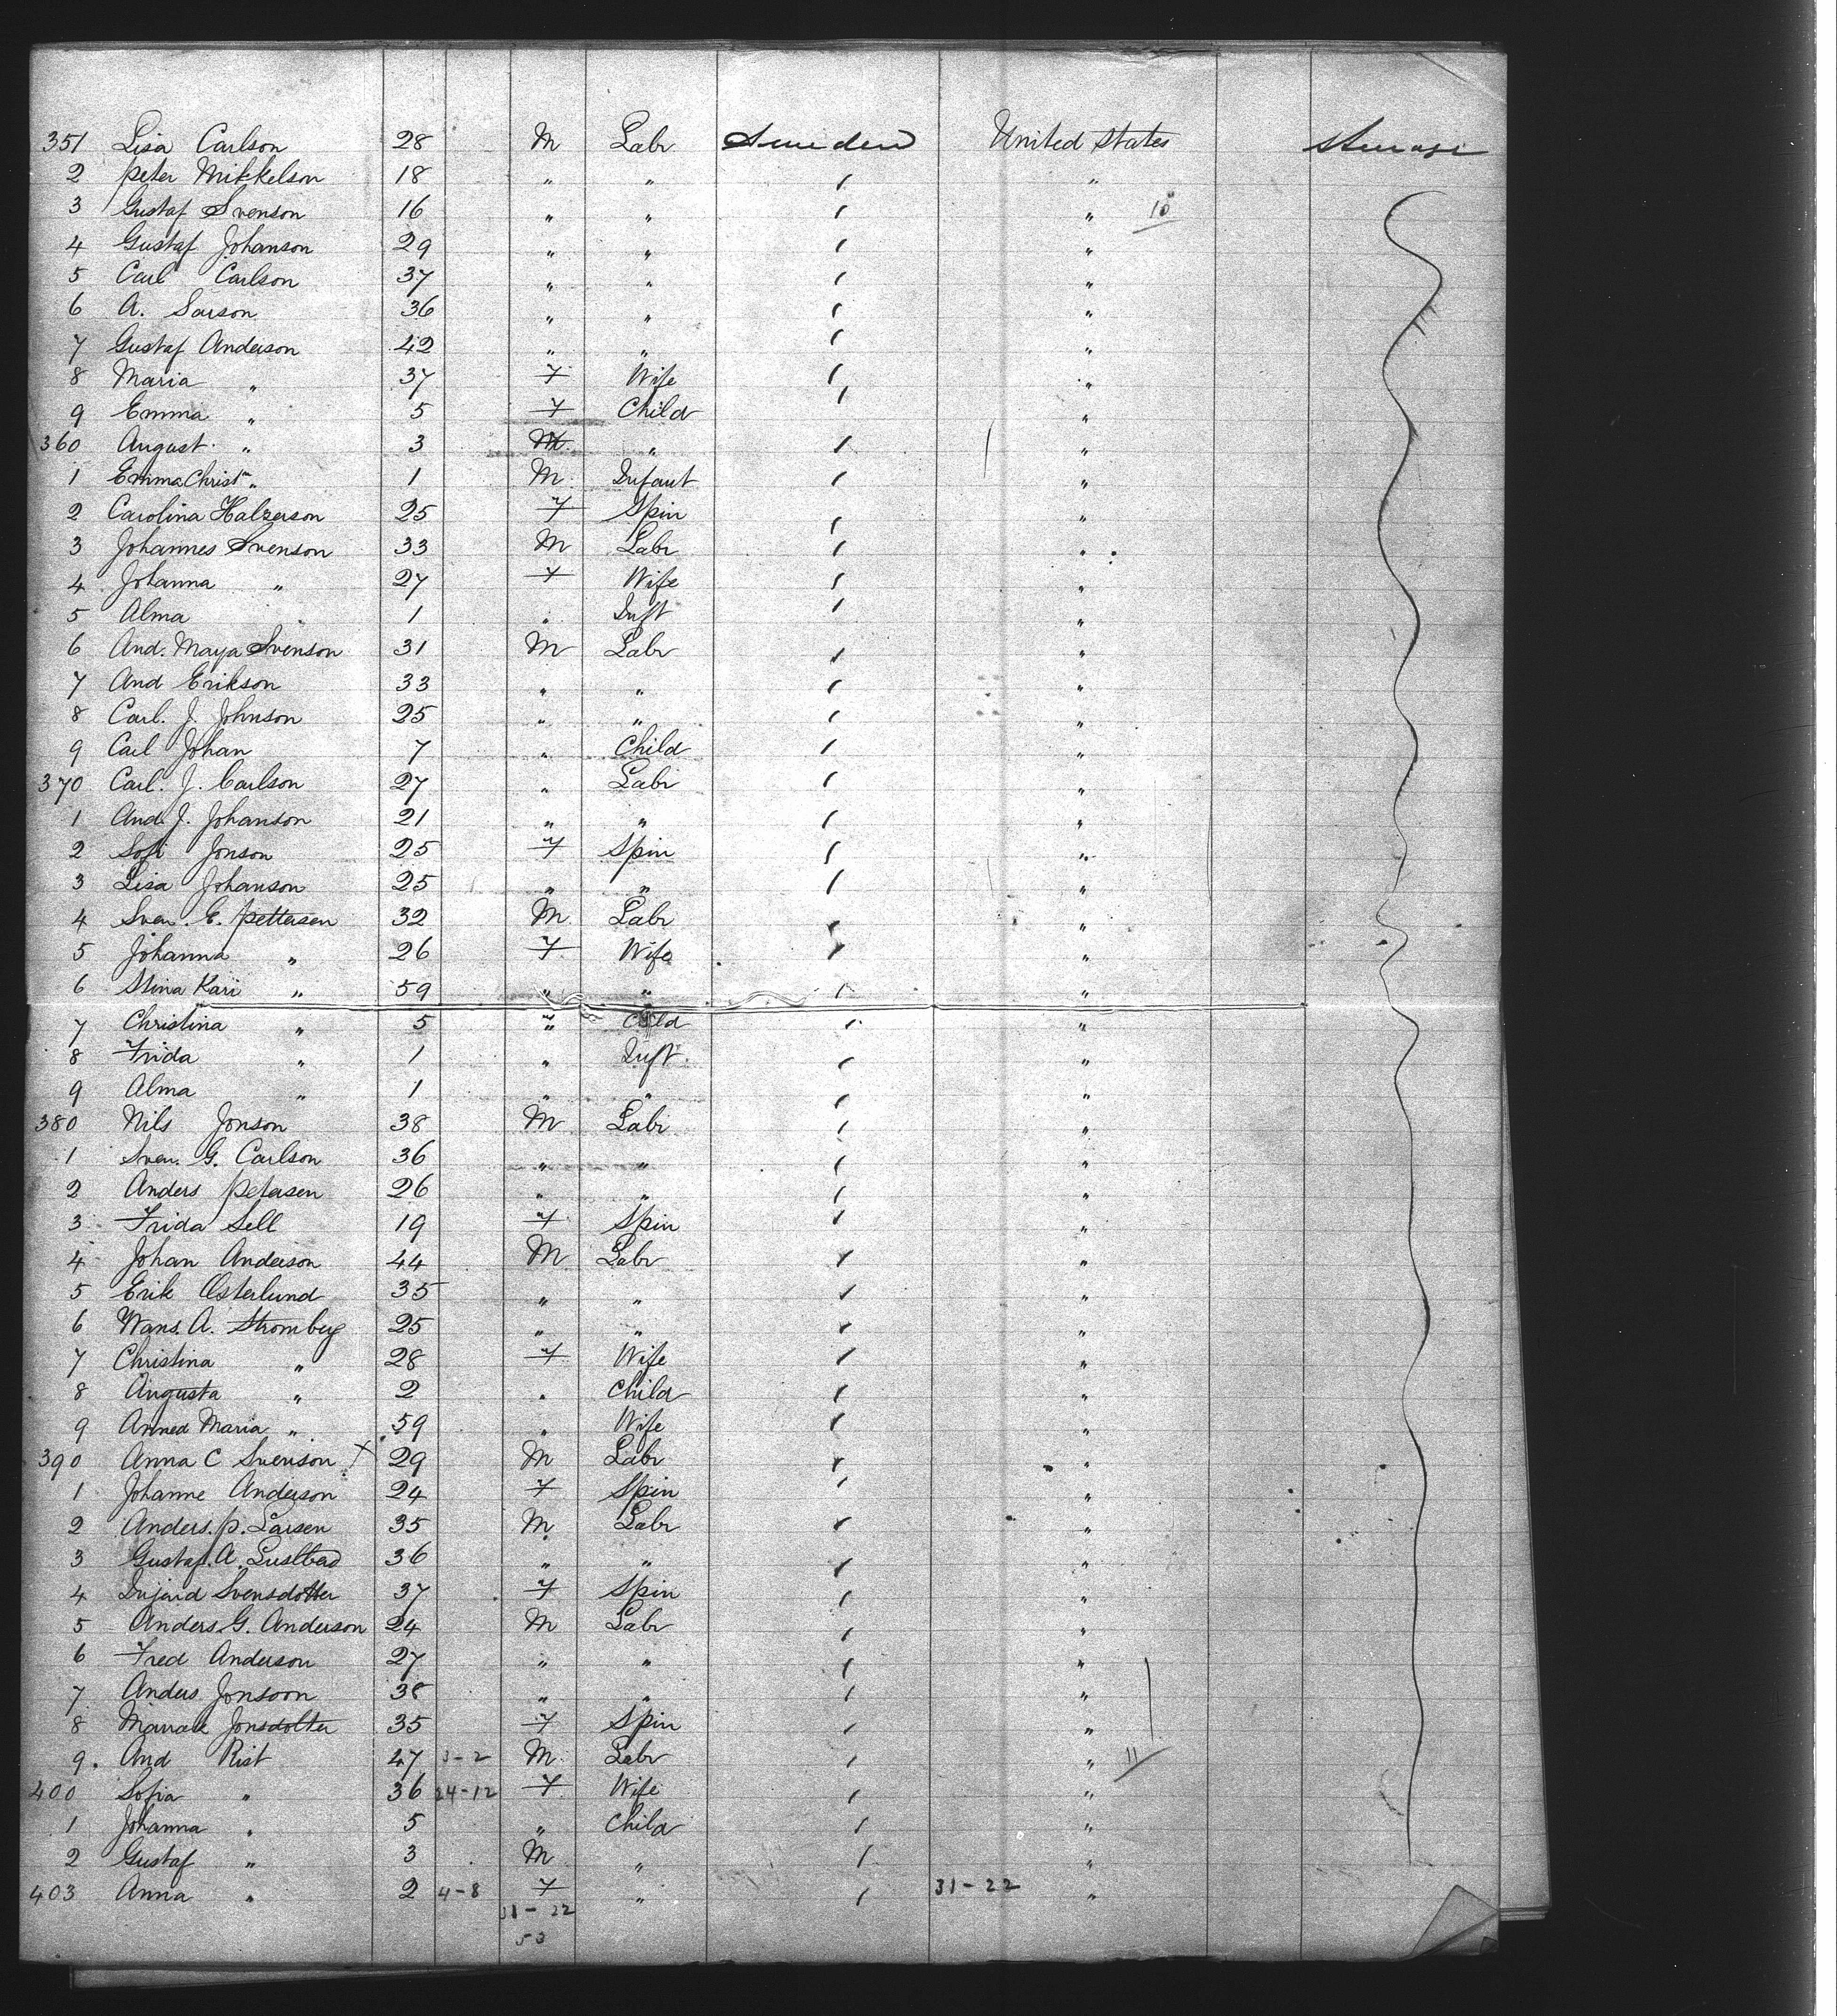 351 Lisa Carlson 28 M Labr Sweden United States Steerage
2 Peter Mikkelson 18 " " " "
3 Gustaf Svenson 16 " " " " 10
4 Gustaf Johanson 29 " " " "
5 Carl Carlson 37 " " " "
6 A. Sarson 36 " " " "
7 Gustaf Anderson 42 " " " "
8 Maria " 37 F Wife " "
9 Emma " 5 F Child " "
360 August " 3 M " " "
1 Emma Christ " 1 M Infant " "
2 Carolina Halverson 25 F Spin " "
3 Johannes Svenson 33 M Labr " "
4 Johanna " 27 F Wife " "
5 Alma " 1 " Inft " "
6 And. Maya Svenson 31 M Labr " "
7 And Erikson 33 " " " "
8 Carl. J. Johnson 25 " " " "
9 Carl Johan 7 " Child " "
370 Carl. J. Carlson 27 " Labr " "
1 And. J. Johanson 21 " " " "
2 Sofi Jonson 25 F Spin " "
3 Lisa Johanson 25 " " " "
4 Sven. E. Pettersen 32 M Labr " "
5 Johanna " 26 F Wife " "
6 Stina Kari " 59 " " " "
7 Christina " 5 " Child " "
8 Frida " 1 " Inft " "
9 Alma " 1 " " " "
380 Nils Jonson 38 M Labr " "
1 Sven. G. Carlson 36 " " " "
2 Anders Petersen 26 " " " "
3 Frida Sell 19 F Spin " "
4 Johan Anderson 44 M Labr " "
5 Erik Osterlund 35 " " " "
6 Wans. A. Stromberg 25 " " " "
7 Christina " 28 F Wife " "
8 Augusta " 2 " Child " "
9 Anned Maria " 59 " Wife " "
390 Anna C Svenson X 29 M Labr " "
1 Johanne Anderson 24 F Spin " "
2 Anders. P. Larsen 35 M Labr " "
3 Gustaf. A. 36 " " " "
4 Svensdotter 37 F Spin " "
5 Anders. G. Anderson 24 M Labr " "
6 Fred Anderson 27 " " " "
7 Anders Jonsoon 38 " " " "
8 Jonsdotter 35 F Spin " "
9. And Rist 47 3-2 M Labr " " 11
400 Sofia " 36 24-12 F Wife " "
1 Johanna " 5 " Child " "
2 Gustaf " 3 M " " "
403 Anna " 2 4-8 F " " 31-22 "
31-22
53